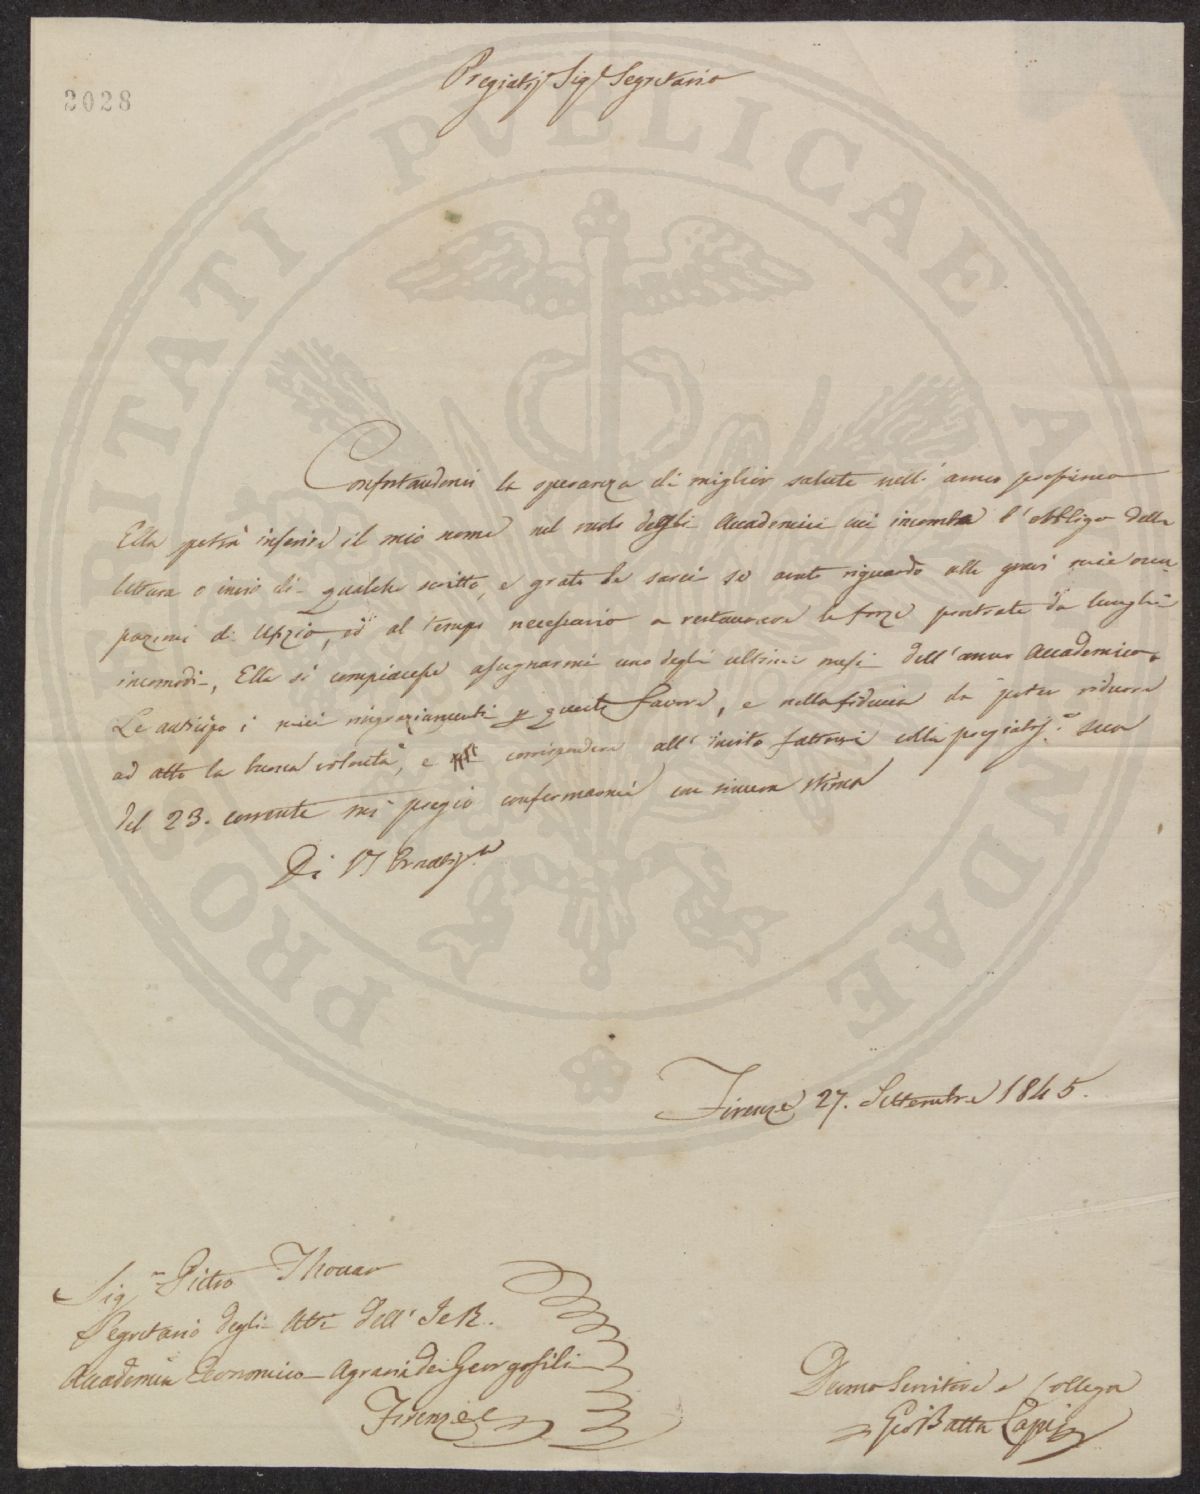 2028
Pregiatis.º Sig.r Segretario
PROSPERITATI PVBLICAE AVGENDAE
Confortandomi la speranza di miglior salute nell'anno prossimo
Ella potrà inserire il mio nome nel ruolo degli Accademici cui incomba l'obbligo della
lettura o invio di qualche scritto, e grato Le sarei se avuto riguardo alle gravi mie occu-
pazioni di Ufizio, ed al tempo necessario a restaurare le forze prostrate da lunghi
incomodi, Ella si compiacesse assegnarmi uno degli ultimi mesi dell'anno Accademico.
Le anticipo i miei ringraziamenti p questo favore, e nella fiducia di poter ridurre
ad atto la buona volontà, e corrispondere all'invito fattomi colla pregiatis.ª sua
del 23. corrente mi pregio confermarmi con sincera stima
Di V.S. Ornatis.ma
Firenze 27. Settembre 1845.
Sig.r Pietro Thouar
Segretario degli Atti dell'I e R.
Accademia Economico-Agraria dei Georgofili
Firenze
Devmo Servitore e Collega
Gio Batta Lapi